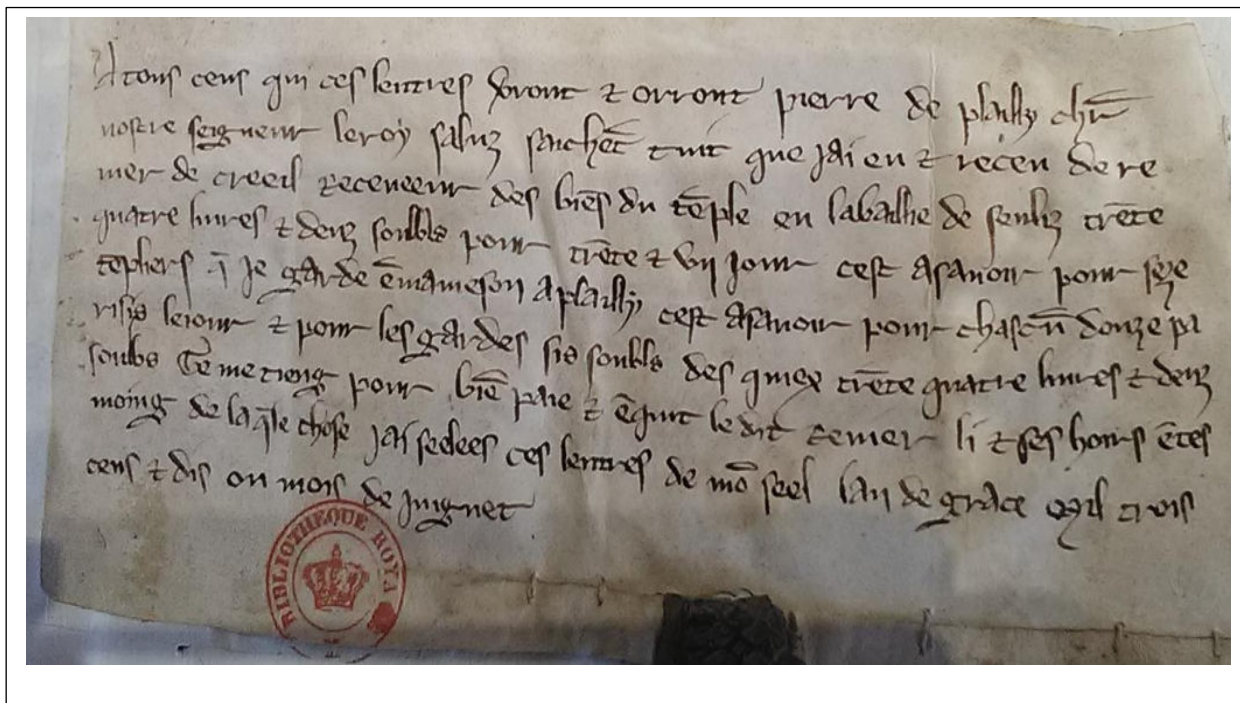 A tous ceus qui ces lettres verront & orront pierre de plailly chr̄
nostre seigneur le roy saluz saichēt tuit que Jai eu & receu de re
mer de creeil receveeur des biēs du tēple en la baillie de senliz trēte
quatre livres & deuz soulbs pour trēte & vij Jour cest asavoir pour seze
tēpliers q̄ Je garde ēmameson a plailly cest asavoir pour chascū douze pa
risis le iour & pour les gardes sis soulbs des quiex trēte quatre livres & deuz
soulbs Ge me tieng pour biē paie & ēquit le dit remer li & ses hoirs ē tes
moing de la q̄le chose Jai seelees ces lettres de mō seel lan de grace mil trois
cens & dis ou mois de Juignet
BIBLIOTHEQUE ROYA